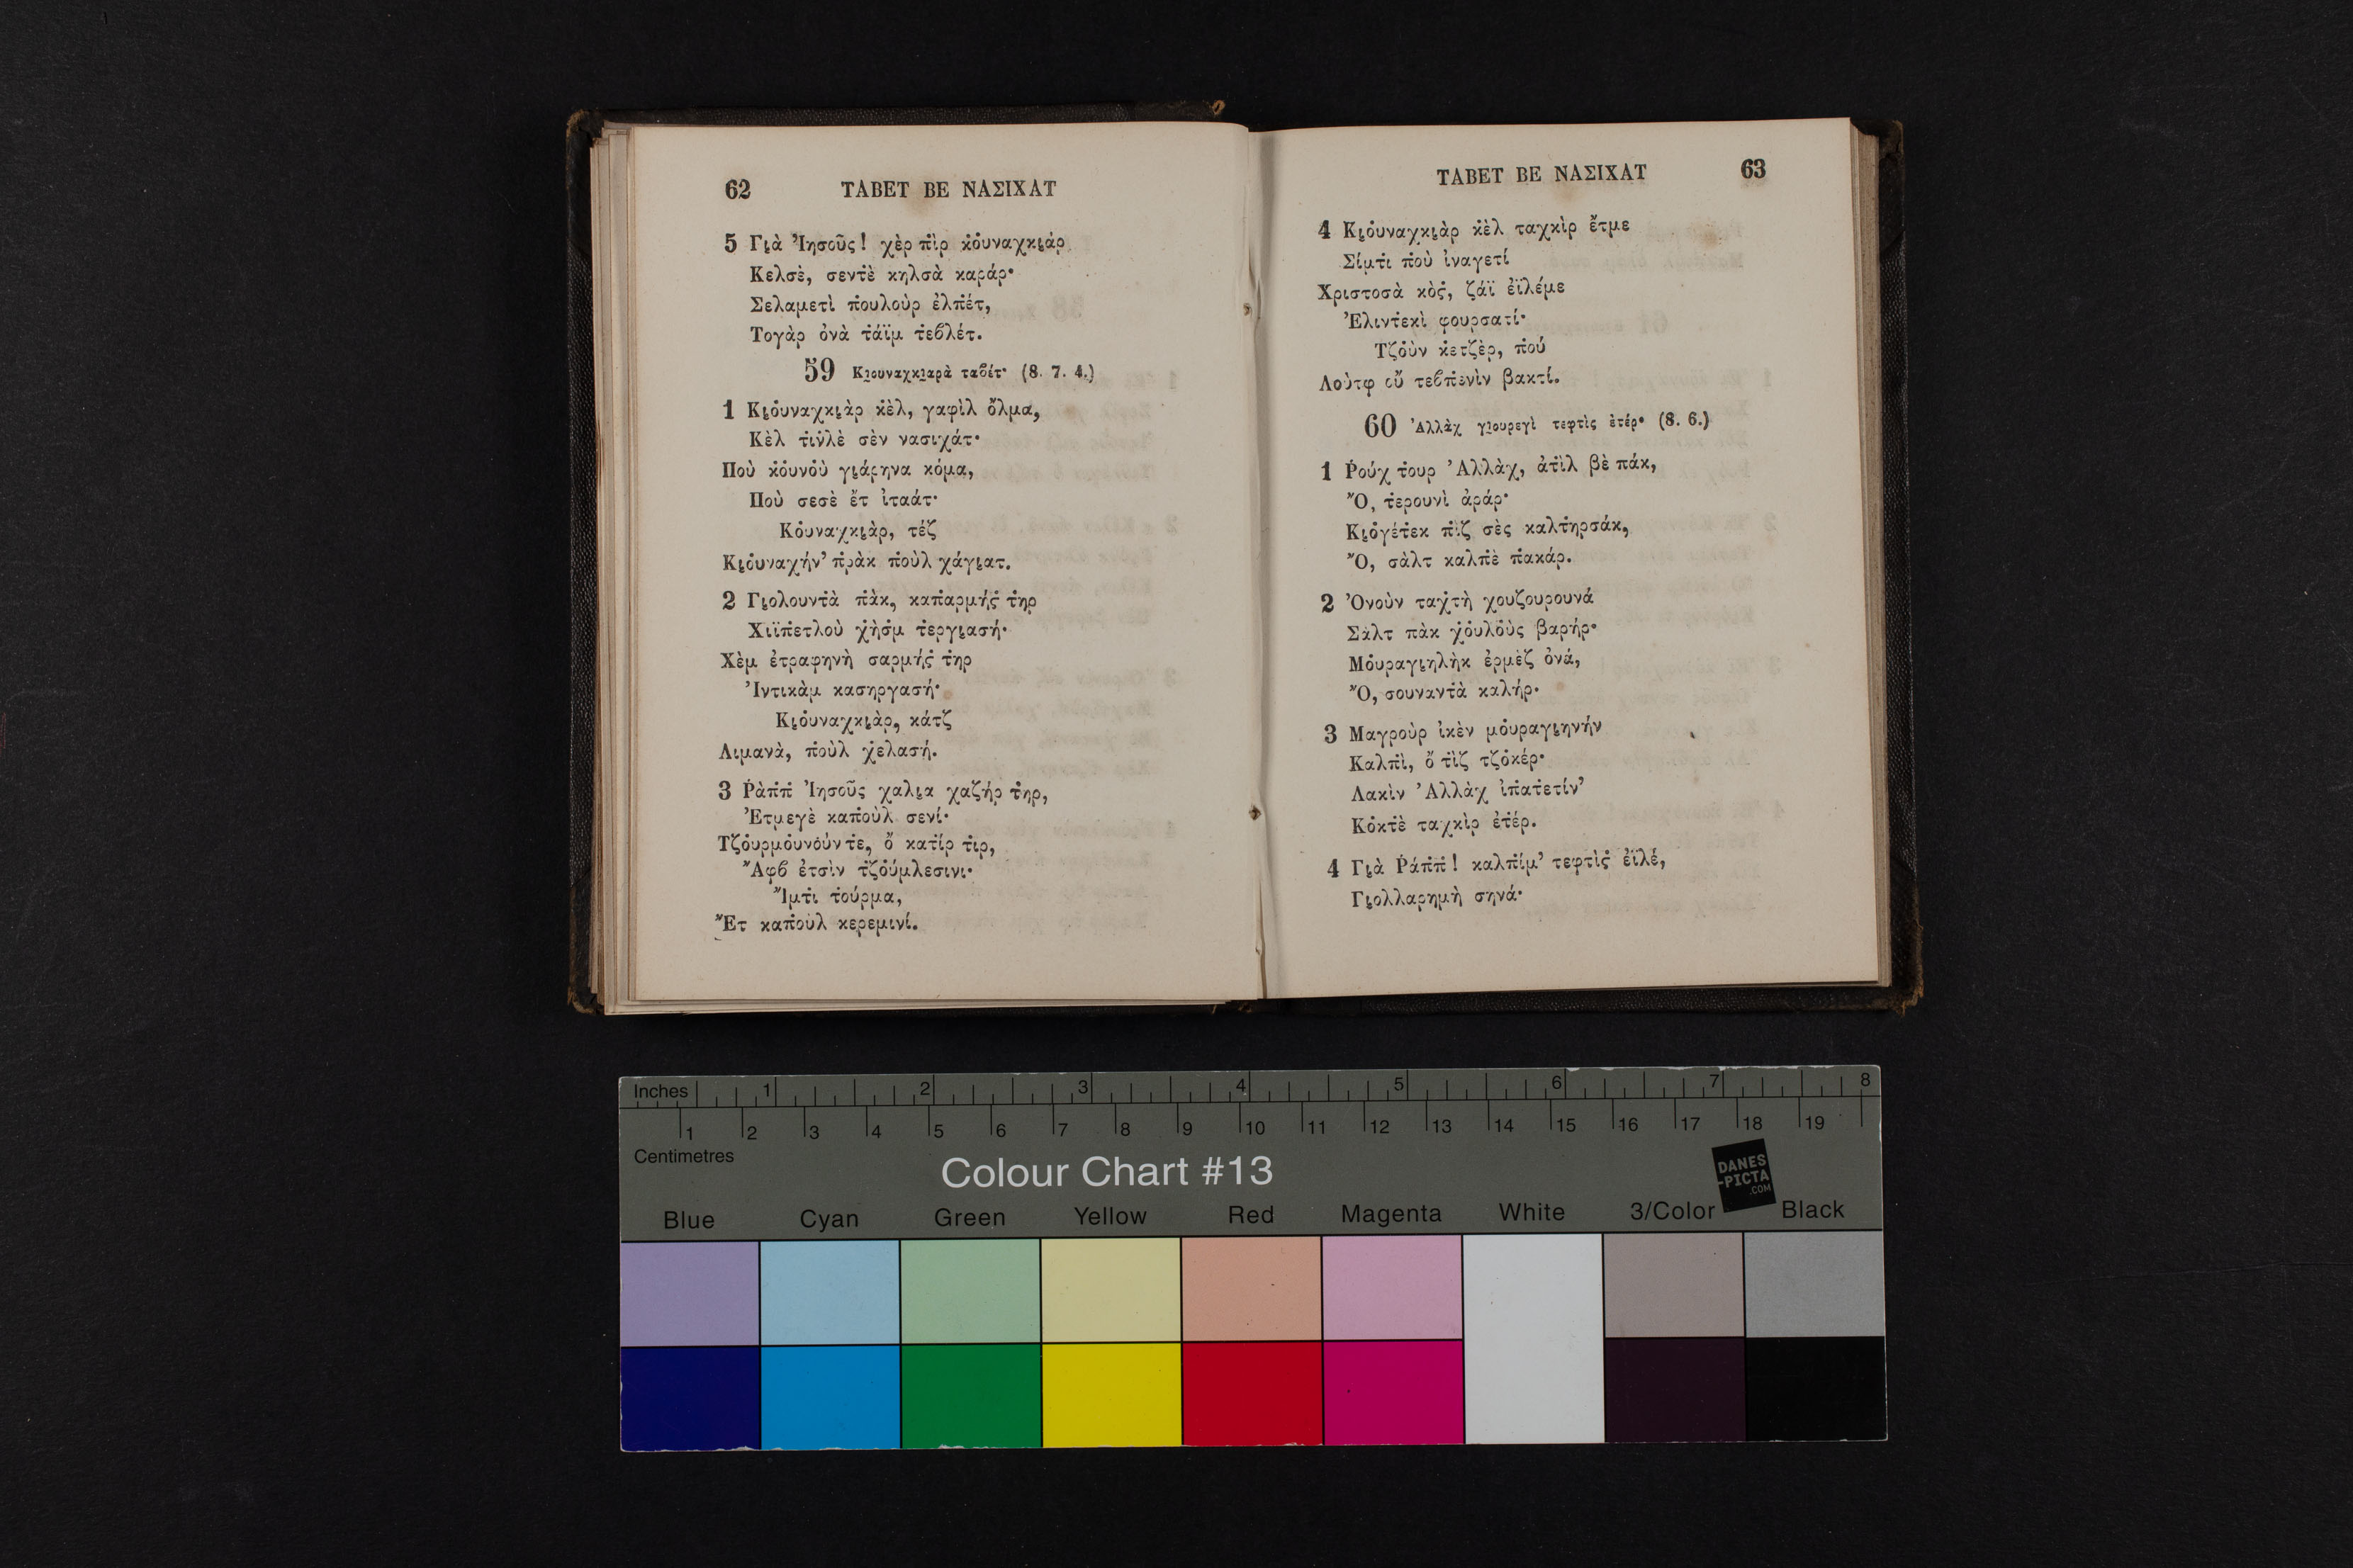 62 ΤΑΒΕΤ ΒΕ ΝΑΣΙΧΑΤ
5 Γι̱ὰ Ἰησοῦς! χὲρ π̇ὶρ κ̇ὀυναχκι̱άρ
Κελσὲ, σεντ̇ὲ κηλσὰ καράρ·
Σελαμετὶ π̇ουλοὺρ ἐλπ̇έτ,
Τογὰρ ὀνὰ τ̇άϊμ τ̇εβλέτ.
59 Κι̱ουναχκι̱αρὰ ταβέτ· (8. 7. 4.)
1 Κι̱ὀυναχκι̱ὰρ κ̇ὲλ, γαφὶλ ὄλμα,
Κὲλ τ̇ινλὲ σὲν νασιχάτ·
Π̇οὺ κ̇ὀυνὀὺ γι̱άρηνα κόμα,
Π̇οὺ σεσὲ ἔτ ἰταάτ·
Κὀυναχκι̱ὰρ, τέζ
Κι̱ὀυναχήν' π̇ρὰκ π̇οὺλ χάγι̱ατ.
2 Γι̱ολουντ̇ὰ π̇ὰκ, καπ̇αρμήσ̇ τ̇ηρ
Χιϊπ̇ετλοὺ χ̇ὴσ̇μ τ̇εργι̱ασή·
Χὲμ ἐτραφηνὴ σαρμήσ̇ τ̇ηρ
Ἰντικὰμ κασηργασή·
Κι̱ὀυναχκι̱ὰρ, κάτζ
Λιμανὰ, π̇οὺλ χ̇ελασή.
3 Ῥὰπ̇π̇ Ἰησοῦς χαλι̱α χαζήρ τ̇ηρ,
Ἐτμεγὲ καπ̇οὺλ σενί·
Τζὀυρμὀυνὀύν τε, ὄ κατίρ τ̇ιρ,
Ἄφβ ἐτσὶν τζὀύμλεσινι·
Ἴμτ̇ι τ̇ούρμα,
Ἔτ καπ̇οὺλ κερεμινί.
ΤΑΒΕΤ ΒΕ ΝΑΣΙΧΑΤ 63
4 Κι̱ὀυναχκι̱ὰρ κ̇ὲλ ταχκὶρ ἔτμε
Σίμτ̇ι π̇οὺ ἰναγετί
Χριστοσὰ κὸσ̇, ζάϊ ἐϊλέμε
Ἐλιντ̇εκὶ φουρσατί·
Τζ̇ὀὺν κ̇ετζ̇ὲρ, π̇ού
Λοὺτφ οὔ τεβπ̇ενὶν βακτί.
60 Ἀλλὰχ γι̱ουρεγὶ τεφτὶς ἐτέρ· (8. 6.)
1 Ῥούχ τ̇ουρ Ἀλλὰχ, ἀτ̇ὶλ βὲ πάκ,
Ὄ, τ̇ερουνὶ ἀράρ·
Κι̱ὀγέτ̇εκ π̇ὶζ σὲς καλτ̇ηρσάκ,
Ὄ, σὰλτ καλπ̇ὲ π̇ακάρ.
2 Ὀνοὺν ταχτὴ χουζουρουνά
Σὰλτ πὰκ χ̇ὀυλὀὺς βαρήρ·
Μὀυραγι̱ηλὴκ ἐρμὲζ ὀνά,
Ὄ, σουναντ̇ὰ καλήρ·
3 Μαγροὺρ ἰκὲν μὀυραγι̱ηνήν
Καλπ̇ὶ, ὄ τ̇ὶζ τζὀκέρ·
Λακὶν Ἀλλὰχ ἰπ̇ατ̇ετίν'
Κὀκτ̇ὲ ταχκὶρ ἐτ̇έρ.
4 Γι̱ὰ Ῥάπ̇π̇! καλπ̇ίμ' τεφτὶσ̇ ἐϊλέ,
Γι̱ολλαρημὴ σηνά·
Inches 1 2 3 4 5 6 7 8
1 2 3 4 5 6 7 8 9 10 11 12 13 14 15 16 17 18 19
Centimetres
Colour Chart #13
DANES
-PICTA
.COM
Blue Cyan Green Yellow Red Magenta White 3/Color Black